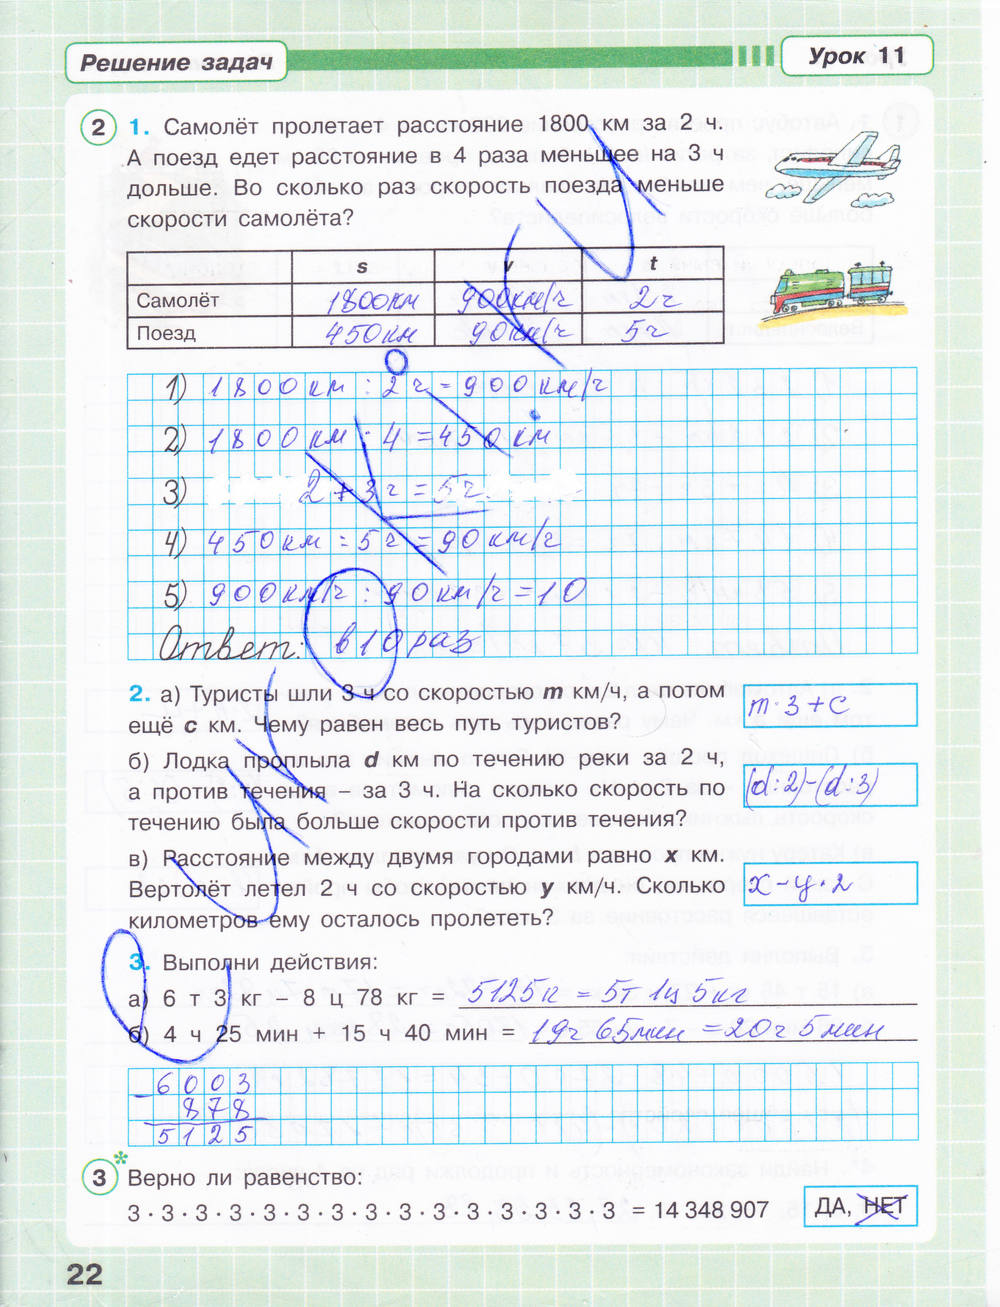 Решение задач
Урок 11
2 1. Самолёт пролетает расстояние 1800 км за 2 ч.
А поезд едет расстояние в 4 раза меньшее на 3 ч
дольше. Во сколько раз скорость поезда меньше
скорости самолёта?
s v t
Самолёт 1800км 900км/ч 2ч
Поезд 450км 90км/ч 5ч
1) 1800км : 2ч = 900км/ч
2) 1800км : 4 = 450км
3) 2 + 3ч = 5ч
4) 450км : 5ч = 90км/ч
5) 900км/ч : 90км/ч = 10
Ответ: в 10 раз
2. а) Туристы шли 3 ч со скоростью m км/ч, а потом
ещё c км. Чему равен весь путь туристов?
m·3+c
б) Лодка проплыла d км по течению реки за 2 ч,
а против течения – за 3 ч. На сколько скорость по
течению была больше скорости против течения?
(d:2)-(d:3)
в) Расстояние между двумя городами равно x км.
Вертолёт летел 2 ч со скоростью y км/ч. Сколько
километров ему осталось пролететь?
x-y·2
3. Выполни действия:
а) 6 т 3 кг – 8 ц 78 кг = 5125кг = 5т 1ц 5кг
б) 4 ч 25 мин + 15 ч 40 мин = 19ч 65мин = 20ч 5мин
- 6003
878
5125
3* Верно ли равенство:
3 · 3 · 3 · 3 · 3 · 3 · 3 · 3 · 3 · 3 · 3 · 3 · 3 · 3 · 3 = 14 348 907
ДА, НЕТ
22